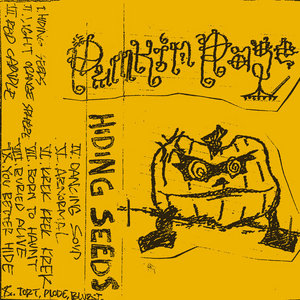 PumKiN PaGe
HiDiNG SEEDS
I. HiDiNG SEEDS
II. LIGHT ORANGE SPHERE
III. RED CANDLE
IV. DANCING SOUP
V. ABNORMAL
VI. KREK KREK KREK
VII. BORN TO HAUNT
VIII. BURIED ALIVE
IX. YOU BETTER HIDE
X. TORT, PLODE, BURST